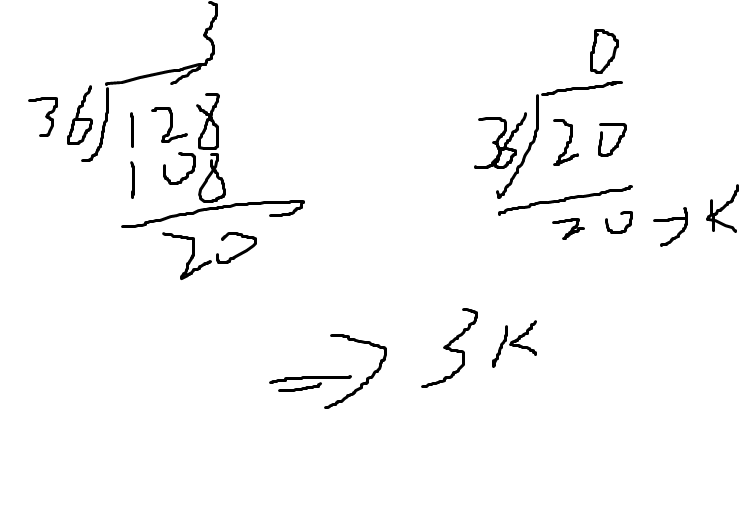 3
36 128
108
20
0
36 20
20 → K
⇒ 3K